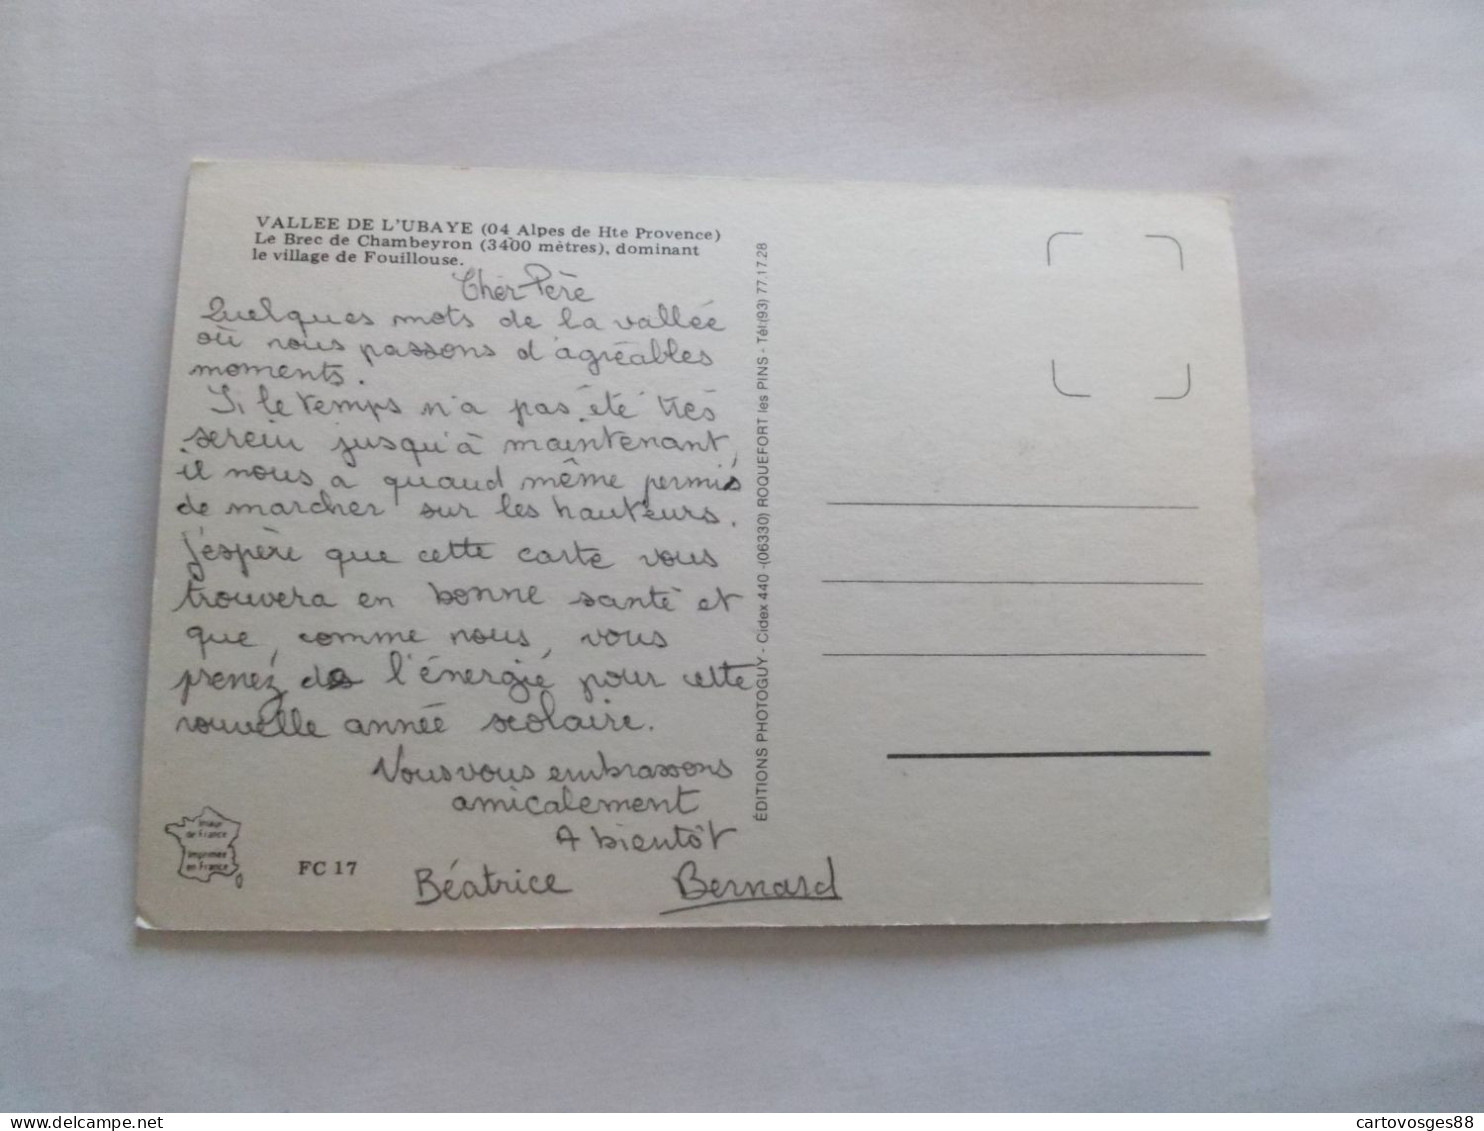 VALLEE DE L'UBAYE (04 Alpes de Hte Provence)
Le Brec de Chambeyron (3400 mètres), dominant
le village de Fouillouse.
Cher Père
Quelques mots de la vallée
où nous passons d'agréables
moments.
Si le temps n'a pas été très
serein jusqu'à maintenant,
il nous a quand même permis
de marcher sur les hauteurs.
J'espère que cette carte vous
trouvera en bonne santé et
que, comme nous, vous
prenez de l'énergie pour cette
nouvelle année scolaire.
Nous vous embrassons
amicalement
A bientôt
Béatrice Bernard
FC 17
de France
Imprimée
en France
ÉDITIONS PHOTOGUY - Cidex 440 -(06330) ROQUEFORT les PINS - Tél:(93) 77.17.28
cartovosges88